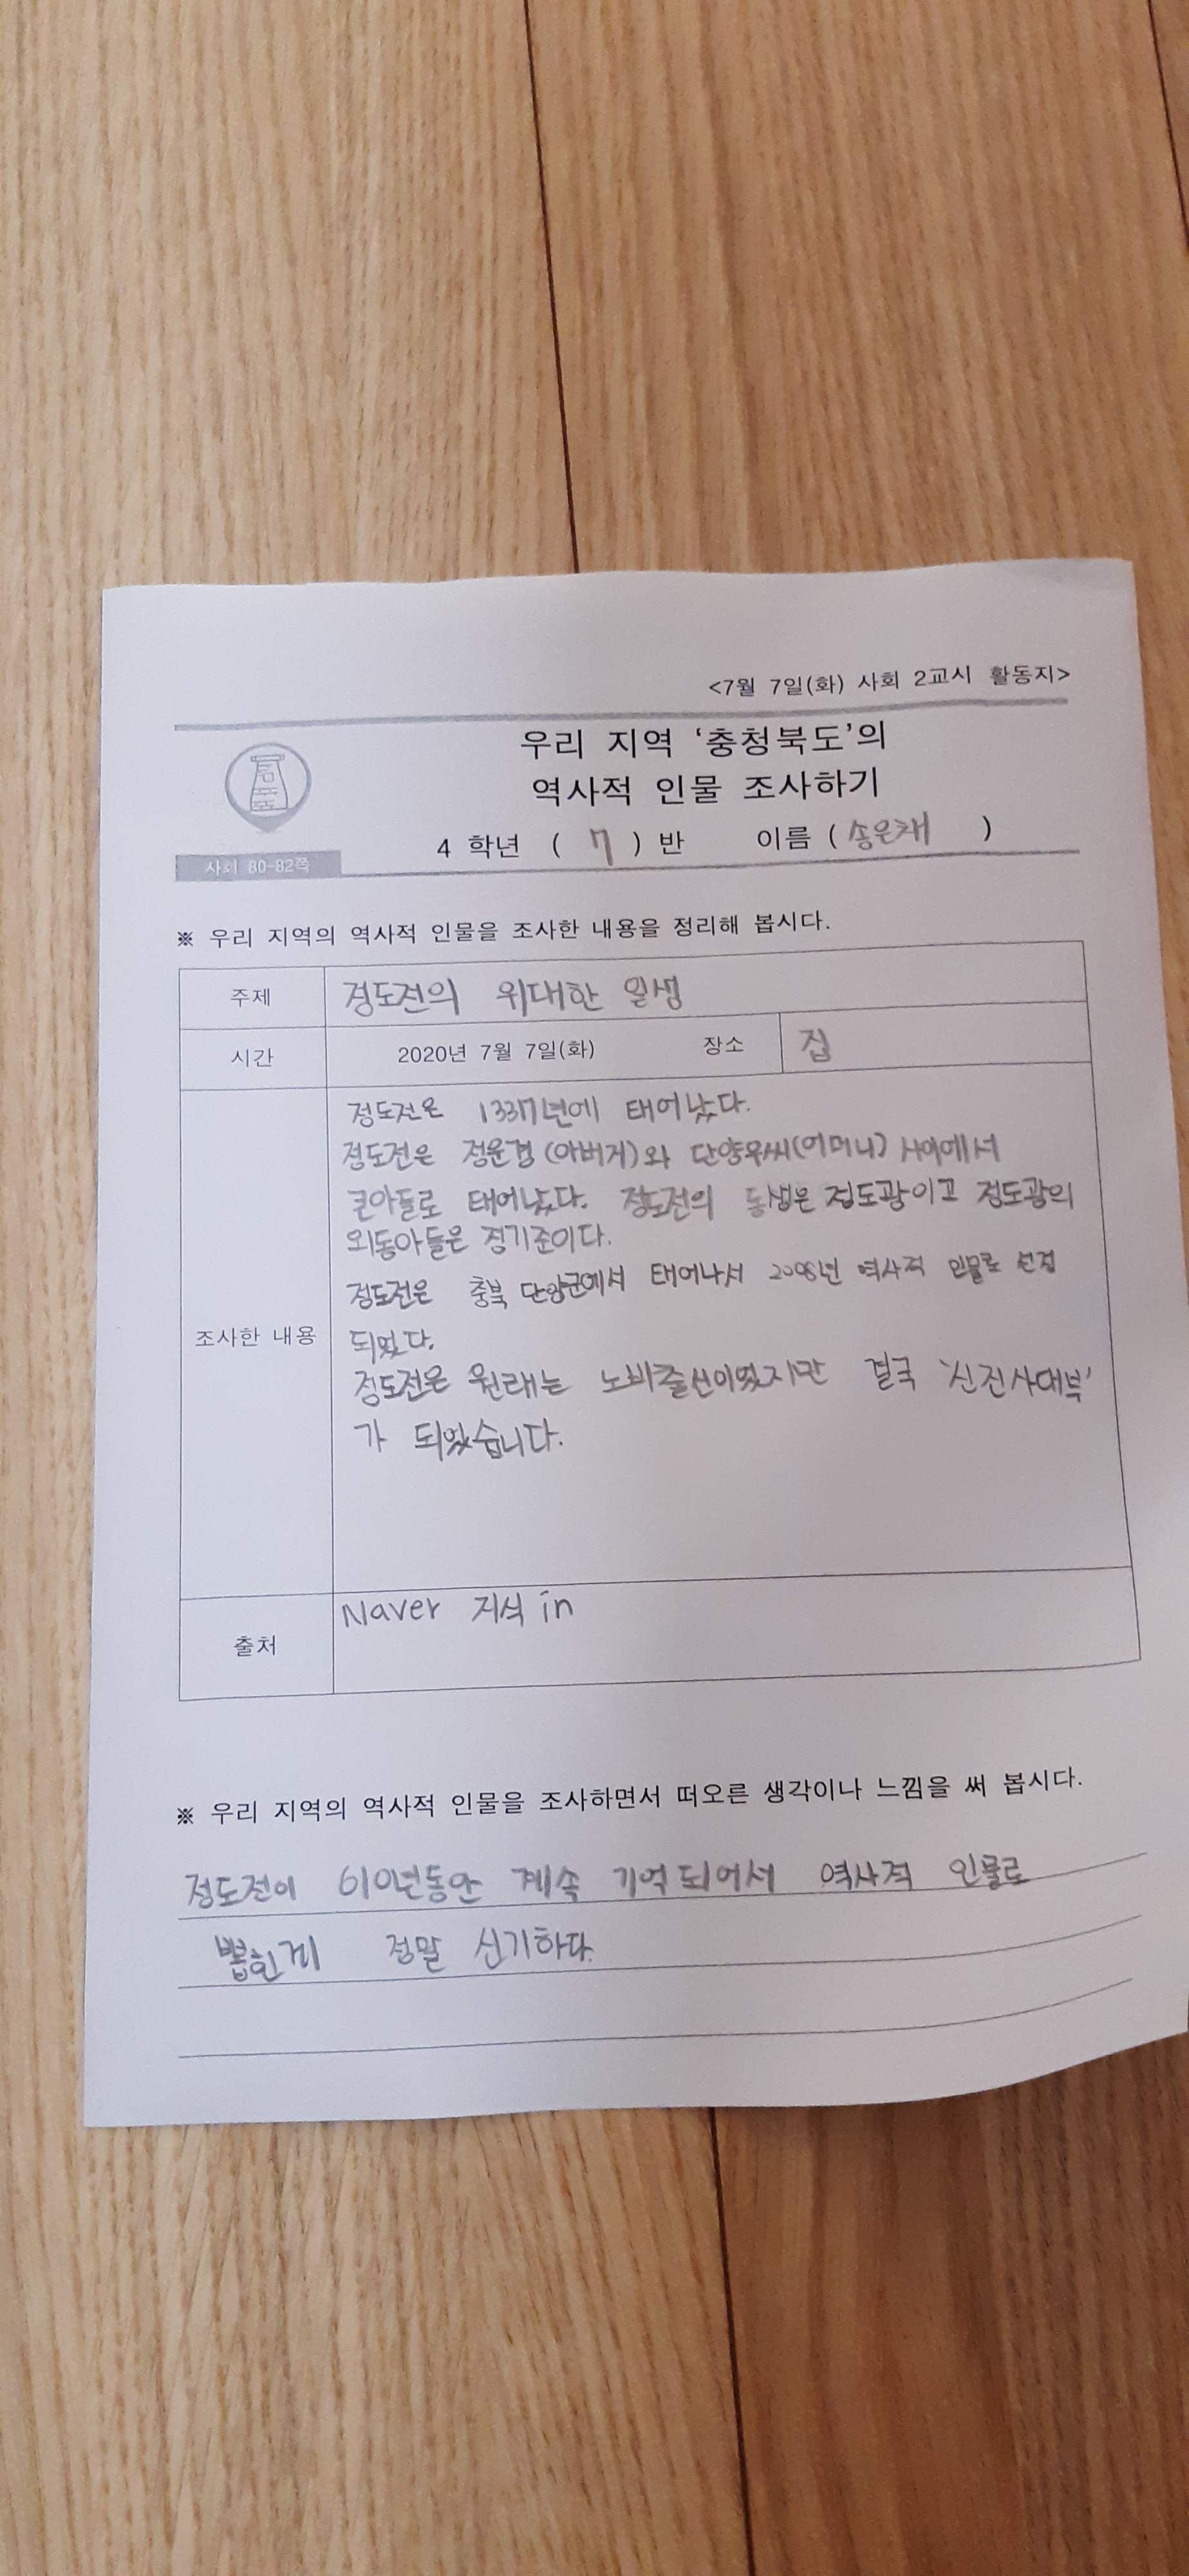 <7월 7일(화) 사회 2교시 활동지>
우리 지역 '충청북도'의
역사적 인물 조사하기
4 학년 ( 7 ) 반 이름 ( 송은채 )
사회 80-82쪽
※ 우리 지역의 역사적 인물을 조사한 내용을 정리해 봅시다.
주제 정도전의 위대한 일생
시간 2020년 7월 7일(화) 장소 집
조사한 내용
정도전은 1337년에 태어났다.
정도전은 정운경(아버지)와 단양우씨(어머니) 사이에서
큰아들로 태어났다. 정도전의 동생은 정도광이고 정도광의
외동아들은 정기준이다.
정도전은 충북 단양군에서 태어나서 2008년 역사적 인물로 선정
되었다.
정도전은 원래는 노비출신이였지만 결국 '신진사대부'
가 되었습니다.
출처 Naver 지식in
※ 우리 지역의 역사적 인물을 조사하면서 떠오른 생각이나 느낌을 써 봅시다.
정도전이 610년동안 계속 기억되어서 역사적 인물로
뽑힌게 정말 신기하다.